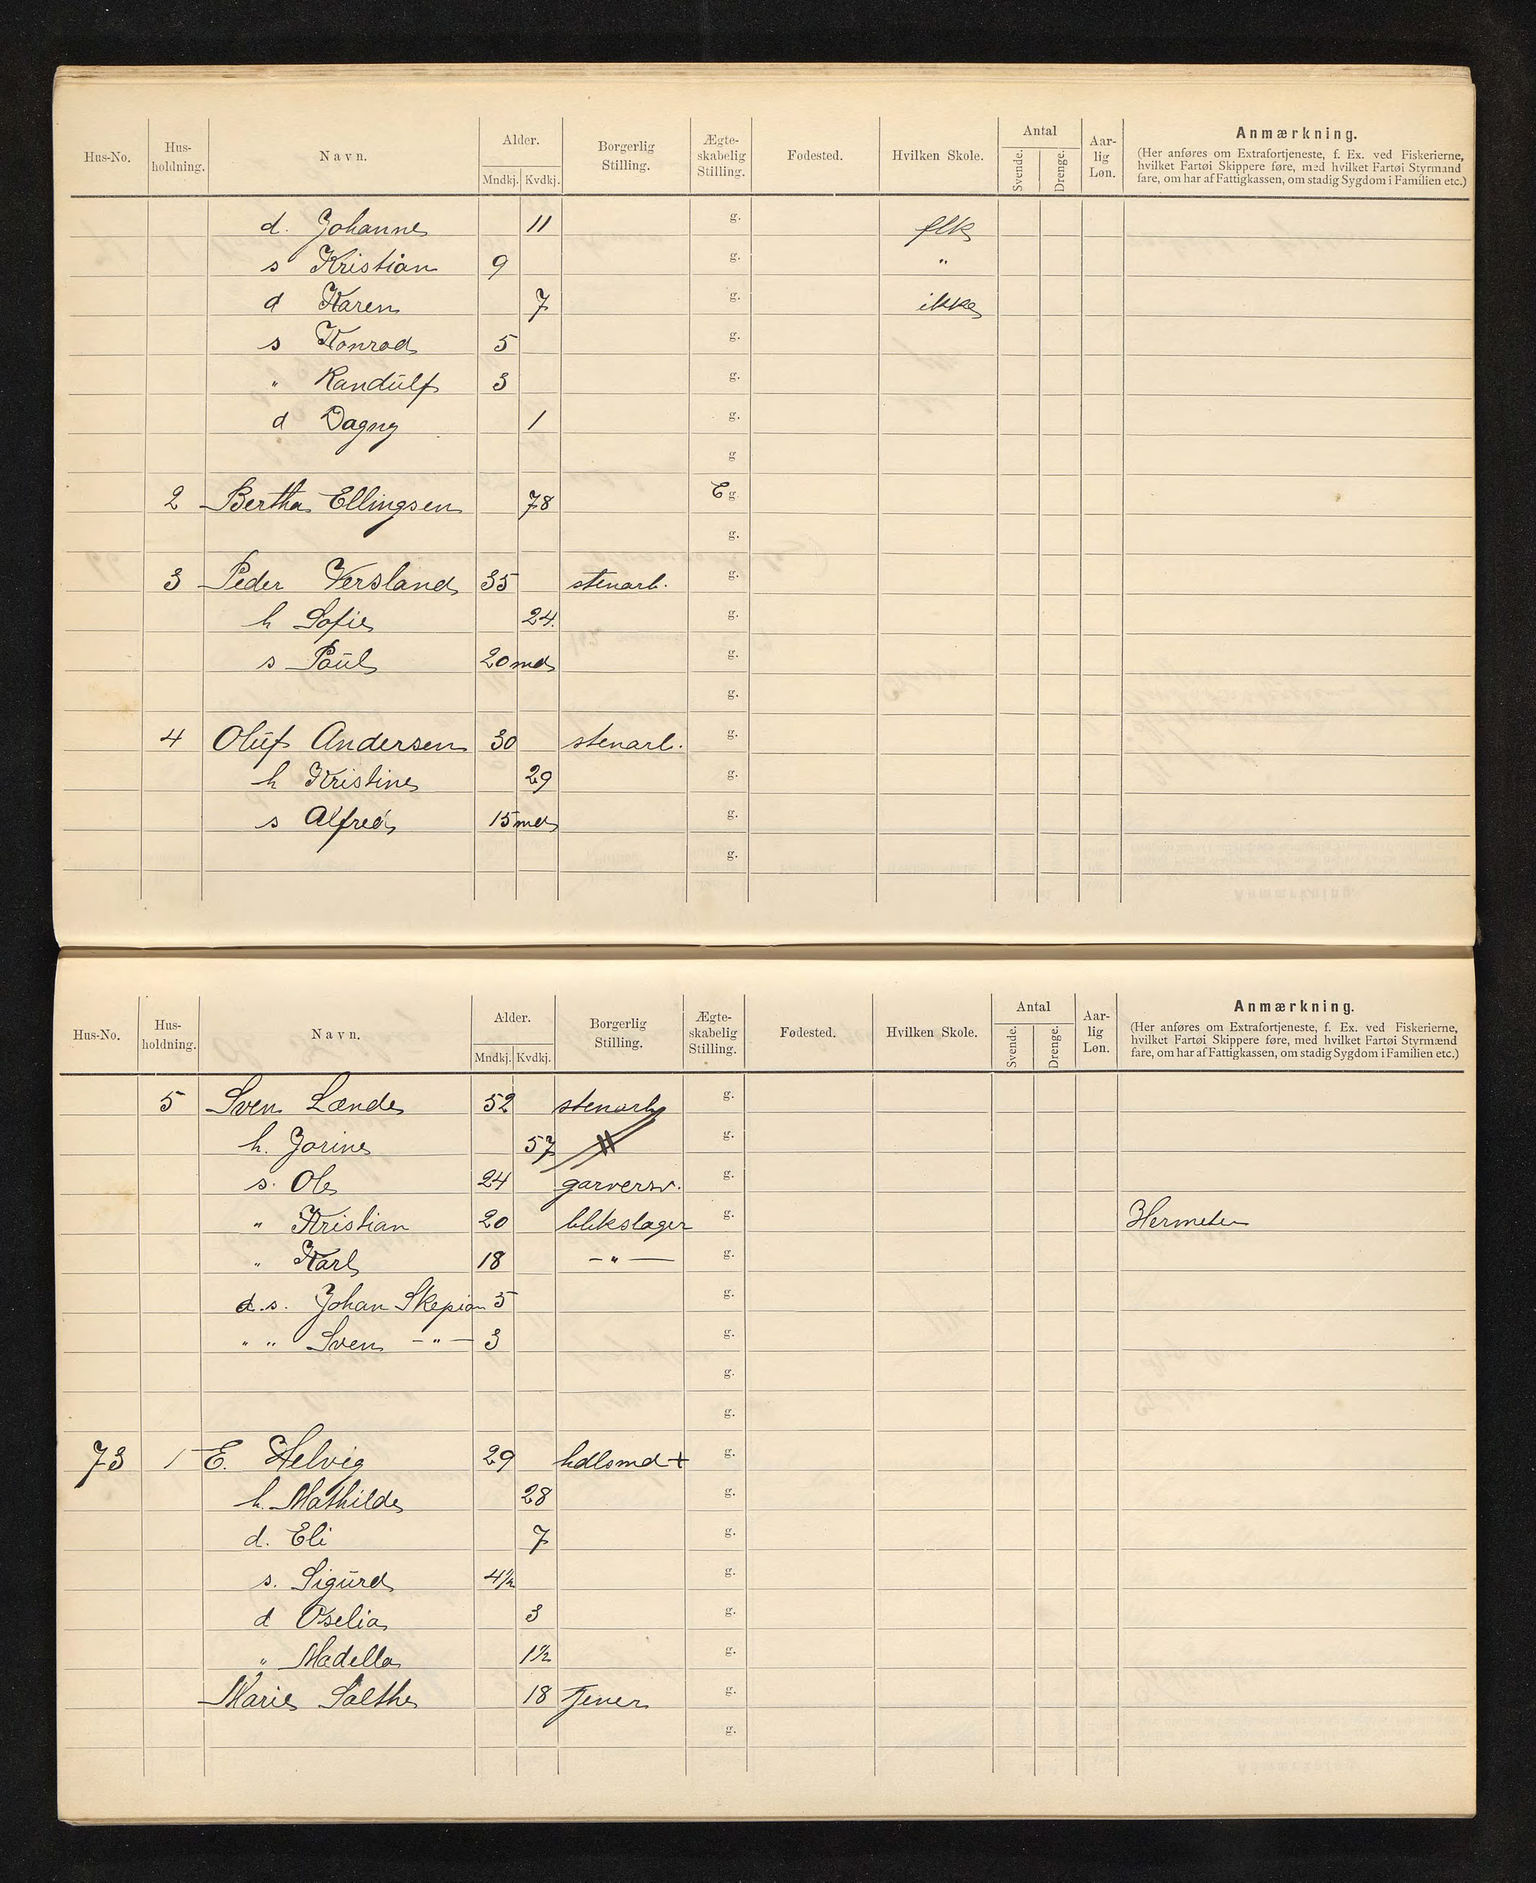 Hus-No. Hus-holdning. Navn. Alder. Mndkj. Kvdkj. Borgerlig Stilling. Ægte-skabelig Stilling. Fødested. Hvilken Skole. Antal Svende. Drenge. Aar-lig Løn. Anmærkning.
(Her anføres om Extrafortjeneste, f. Ex. ved Fiskerierne,
hvilket Fartøi Skippere føre, med hvilket Fartøi Styrmænd
fare, om har af Fattigkassen, om stadig Sygdom i Familien etc.)
d. Johanne 11 g. flk
s Kristian 9 g. "
d Karen 7 g. ikke
s Konrad 5 g.
" Randulf 3 g.
d Dagny 1 g.
g
2 Bertha Ellingsen 78 E g.
g.
3 Peder Versland 35 stenarb. g.
h Sofie 24. g.
s Paul 20 md g.
g.
4 Oluf Andersen 30 stenarb. g.
h Kristine 29 g.
s Alfred 15 md g.
g.
Hus-No. Hus-holdning. Navn. Alder. Mndkj. Kvdkj. Borgerlig Stilling. Ægte-skabelig Stilling. Fødested. Hvilken Skole. Antal Svende. Drenge. Aar-lig Løn. Anmærkning.
(Her anføres om Extrafortjeneste, f. Ex. ved Fiskerierne,
hvilket Fartøi Skippere føre, med hvilket Fartøi Styrmænd
fare, om har af Fattigkassen, om stadig Sygdom i Familien etc.)
5 Sven Lænde 52 stenarb g.
h. Jorine 57 g.
s. Ole 24 garversv. g.
" Kristian 20 blikslager g. Hermeter
" Karl 18 — " — g.
d.s. Johan Skepian 5 g.
" " Sven — " — 3 g.
g.
g.
73 1 E. Helvig 29 hdlsmd + g.
h. Mathilde 28 g.
d. Eli 7 g.
s. Sigurd 4½ g.
d Oselia 3 g.
" Madella 1½ g.
Marie Salthe 18 Tjener g.
g.